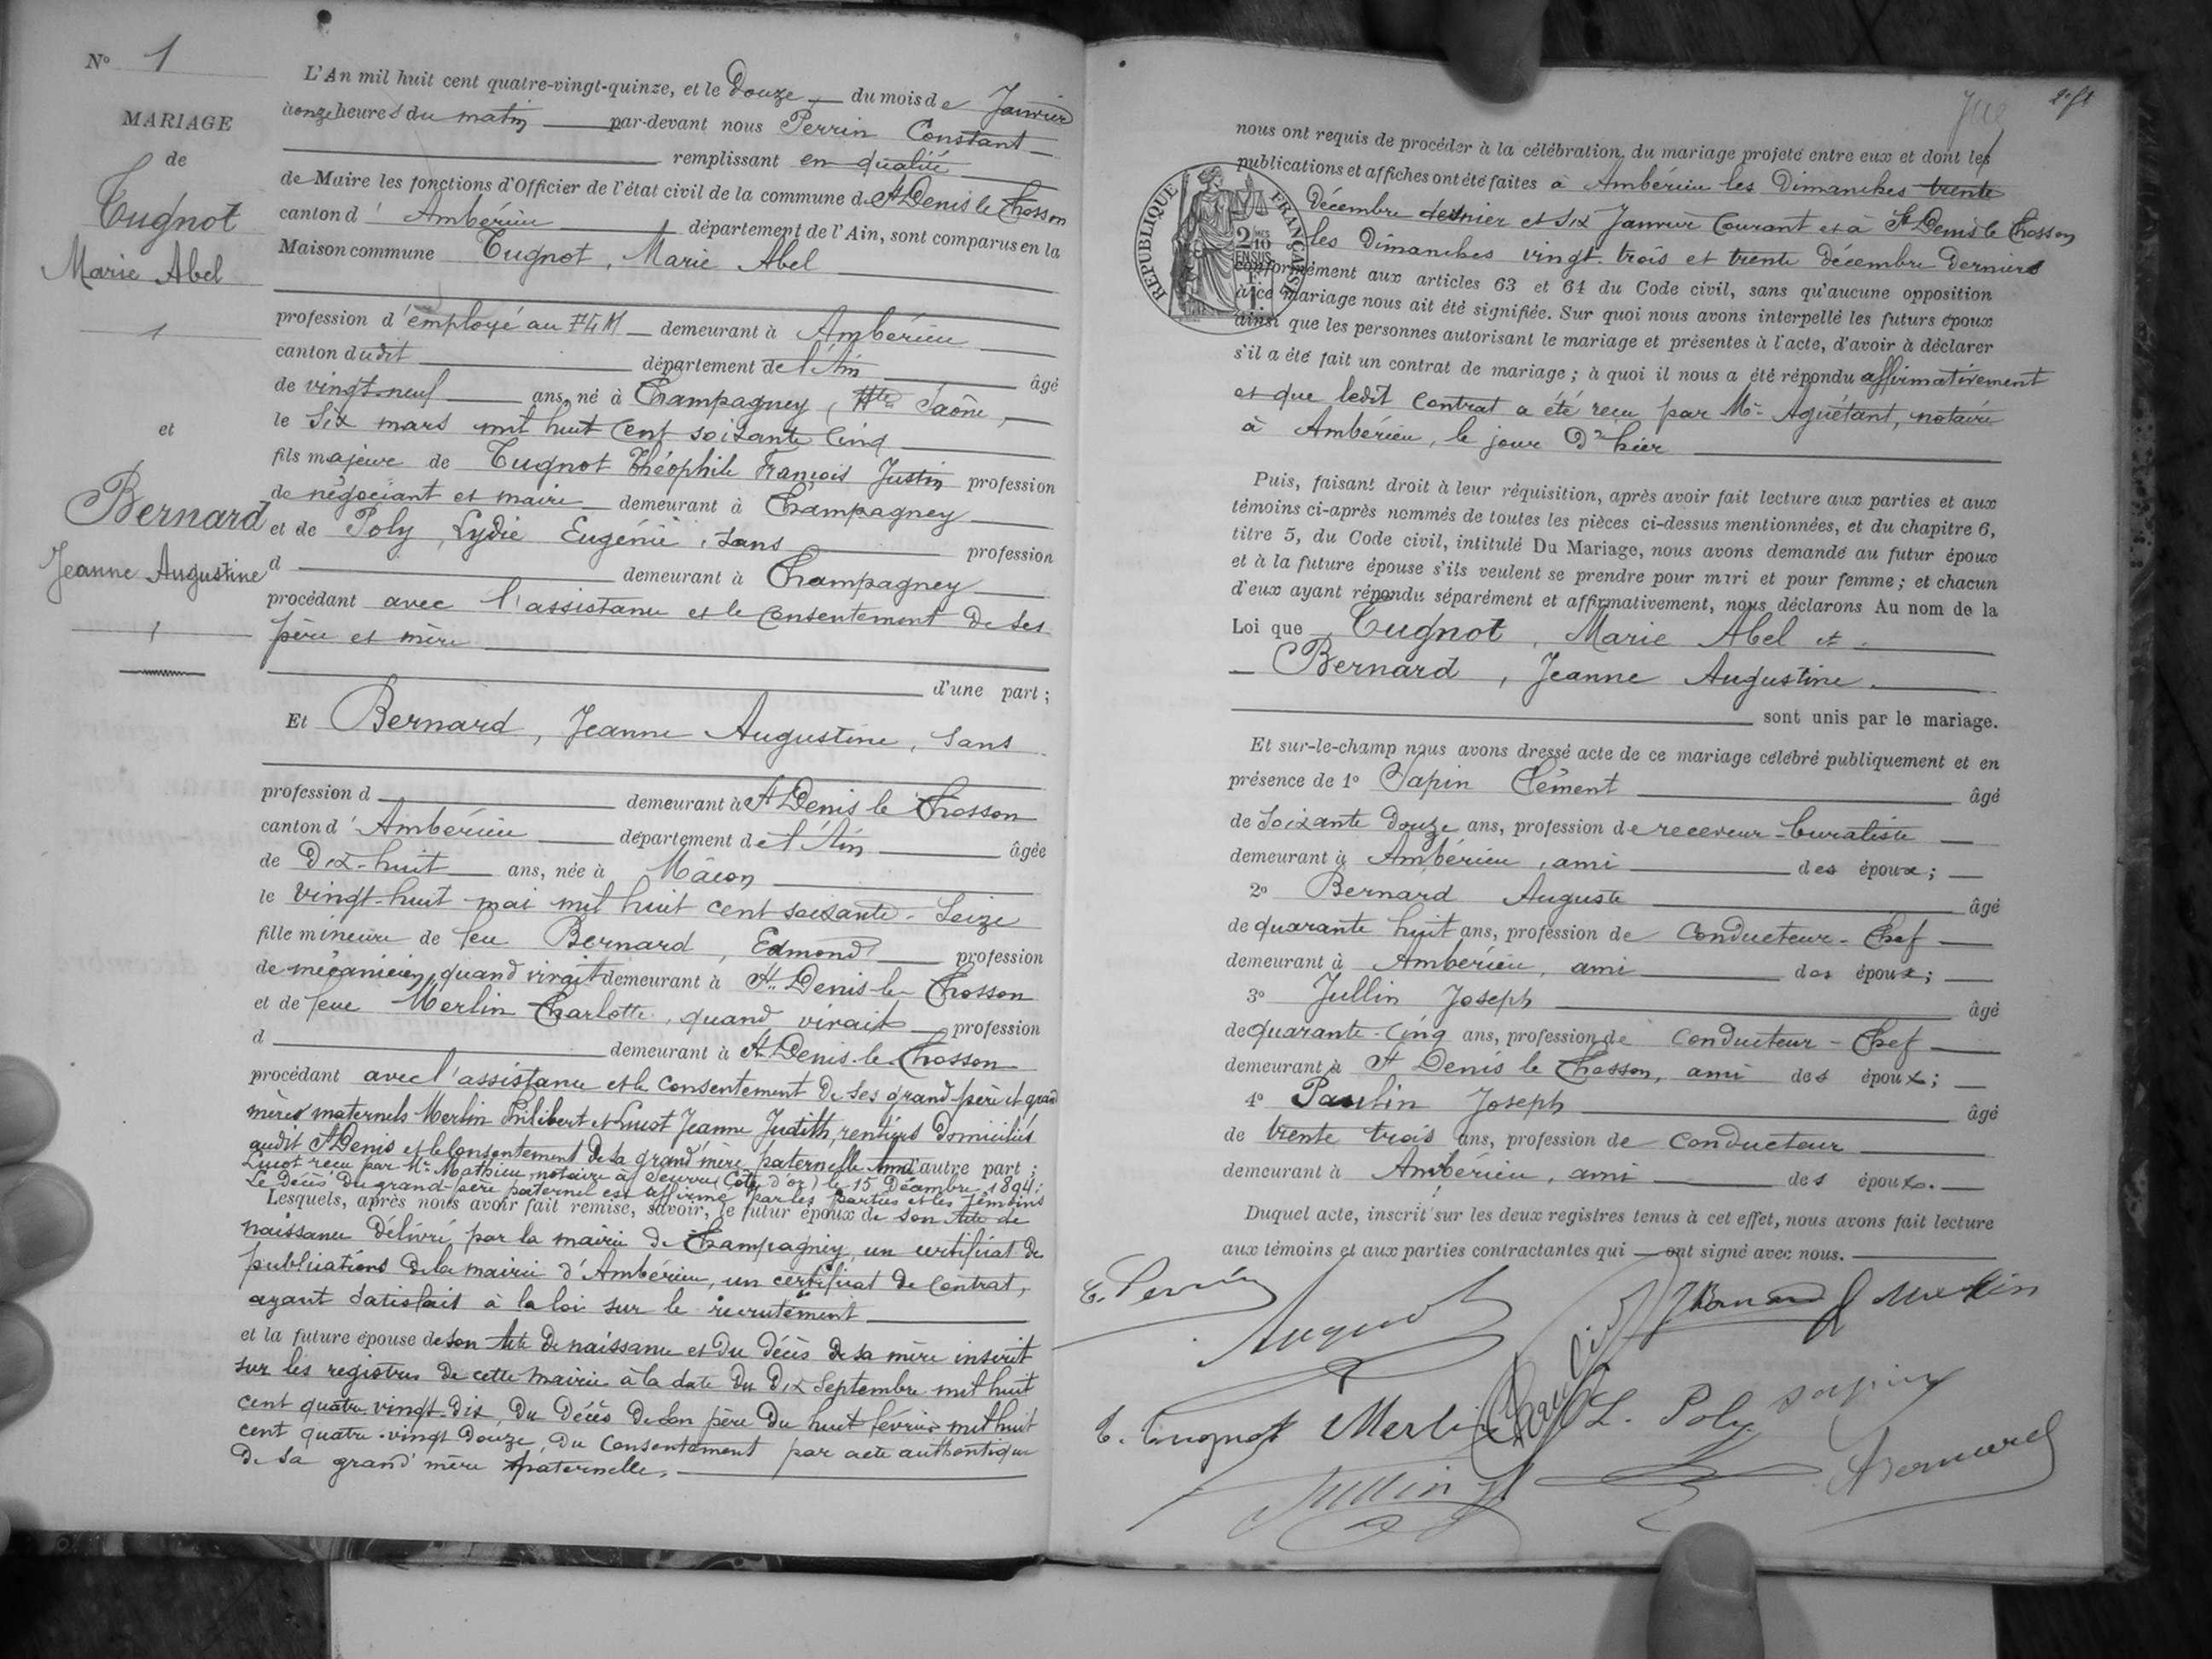 N° 1
MARIAGE
de
Cugnot
Marie Abel
et
Bernard
Jeanne Augustine
L'An mil huit cent quatre-vingt-quinze, et le Douze du mois de Janvier
à onze heures du matin par-devant nous Perrin Constant
remplissant en qualité
de Maire les fonctions d'Officier de l'état civil de la commune de St Denis le Chosson
canton d'Ambérieu département de l'Ain, sont comparus en la
Maison commune Cugnot, Marie Abel
profession d'employé au demeurant à Ambérieu
canton dudit département de l'Ain âgé
de vingt-neuf ans, né à Champagney, Hte Saône,
le Six mars mil huit cent soixante cinq
fils majeur de Cugnot Théophile François Justin profession
de négociant et maire demeurant à Champagney
et de Poly, Lydie Eugénie, sans profession
d demeurant à Champagney
procédant avec l'assistance et le consentement de ses
père et mère
d'une part ;
Et Bernard, Jeanne Augustine, sans
profession d demeurant à St Denis le Chosson
canton d'Ambérieu département de l'Ain âgée
de Dix-huit ans, née à Mâcon
le vingt-huit mai mil huit cent soixante-seize
fille mineure de feu Bernard, Edmond profession
de mécanicien, quand vivait demeurant à St Denis-le-Chosson
et de feue Merlin Charlotte, quand vivait profession
d demeurant à St Denis-le-Chosson
procédant avec l'assistance et le consentement de ses grand-père et grand
mère maternels Merlin Philibert et Lucot Jeanne Judith, rentiers domiciliés
audit St Denis et le consentement de sa grand'mère paternelle d'autre part ;
Lucot reçu par Mr Mathieu, notaire à Seurre (Côte d'or) le 15 Décembre 1894;
Le décès du grand-père paternel est affirmé par les parties et les témoins
Lesquels, après nous avoir fait remise, savoir, le futur époux de son Acte de
naissance délivré par la mairie de Champagney, un certificat de
publications de la mairie d'Ambérieu, un certificat de contrat,
ayant satisfait à la loi sur le recrutement
et la future épouse de son Acte de naissance et du décès de sa mère inscrit
sur les registres de cette mairie à la date du dix Septembre mil huit
cent quatre-vingt-dix, du décès de son père du huit février mil huit
cent quatre-vingt douze, du consentement par acte authentique
de sa grand'mère paternelle.
nous ont requis de procéder à la célébration du mariage projeté entre eux et dont les
publications et affiches ont été faites à Ambérieu les Dimanches trente
décembre dernier et six Janvier courant et à St Denis le Chosson
les dimanches vingt-trois et trente décembre derniers
conformément aux articles 63 et 64 du Code civil, sans qu'aucune opposition
à ce mariage nous ait été signifiée. Sur quoi nous avons interpellé les futurs époux
ainsi que les personnes autorisant le mariage et présentes à l'acte, d'avoir à déclarer
s'il a été fait un contrat de mariage ; à quoi il nous a été répondu affirmativement
et que ledit contrat a été reçu par Me Aguétant, notaire
à Ambérieu, le jour d'hier
RÉPUBLIQUE FRANÇAISE
Puis, faisant droit à leur réquisition, après avoir fait lecture aux parties et aux
témoins ci-après nommés de toutes les pièces ci-dessus mentionnées, et du chapitre 6,
titre 5, du Code civil, intitulé Du Mariage, nous avons demandé au futur époux
et à la future épouse s'ils veulent se prendre pour mari et pour femme ; et chacun
d'eux ayant répondu séparément et affirmativement, nous déclarons Au nom de la
Loi que Cugnot, Marie Abel et
Bernard, Jeanne Augustine.
sont unis par le mariage.
Et sur-le-champ nous avons dressé acte de ce mariage célébré publiquement et en
présence de 1° Sapin Clément âgé
de soixante douze ans, profession de receveur-buraliste
demeurant à Ambérieu, ami des époux ;
2° Bernard Auguste âgé
de quarante huit ans, profession de conducteur-Chef
demeurant à Ambérieu, ami des époux ;
3° Jullin Joseph âgé
de quarante-cinq ans, profession de conducteur-Chef
demeurant à St Denis le Chosson, ami des époux ;
4° Paulin Joseph âgé
de trente trois ans, profession de conducteur
demeurant à Ambérieu, ami des époux.
Duquel acte, inscrit sur les deux registres tenus à cet effet, nous avons fait lecture
aux témoins et aux parties contractantes qui ont signé avec nous.
C. Perrin
Cugnot
J Bernard
J Merlin
C. Cugnot Merlin Paulin L. Poly Sapin
Jullin J
A Bernard